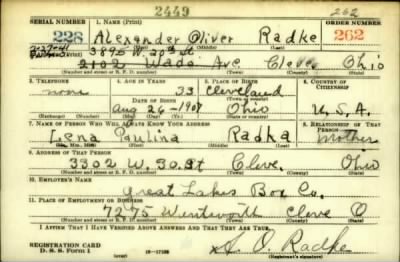 2449
262
SERIAL NUMBER 1. NAME (Print) ORDER NUMBER
228 Alexander Oliver Radke 262
(First) (Middle) (Last)
3895 W. 20th St
2102 Wade Ave Cleve Ohio
(Number and street or R. F. D. number) (Town) (County) (State)
3. TELEPHONE 4. AGE IN YEARS 5. PLACE OF BIRTH 6. COUNTRY OF CITIZENSHIP
none 33 Cleveland
DATE OF BIRTH (Town or county)
Aug 26-1907 Ohio U.S.A.
7. NAME OF PERSON WHO WILL ALWAYS KNOW YOUR ADDRESS 8. RELATIONSHIP OF THAT PERSON
Lena Paulina Radka Mother
(Mr., Mrs., Miss) (First) (Middle) (Last)
9. ADDRESS OF THAT PERSON
3302 W. 30.St Cleve. Ohio
(Number and street or R. F. D. number) (Town) (County) (State)
10. EMPLOYER'S NAME
Great Lakes Box Co.
11. PLACE OF EMPLOYMENT OR BUSINESS
7275 Wentworth Cleve O
(Number and street or R. F. D. number) (Town) (County) (State)
I AFFIRM THAT I HAVE VERIFIED ABOVE ANSWERS AND THAT THEY ARE TRUE.
REGISTRATION CARD
D. S. S. Form 1 A. O. Radke
(Registrant's signature)